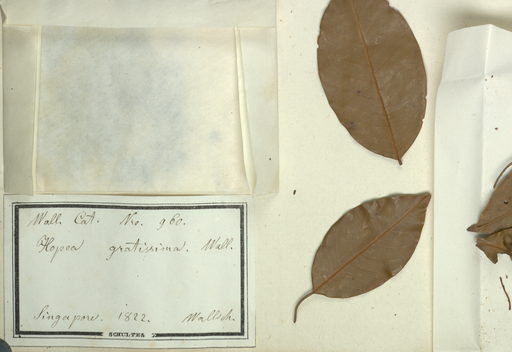 Wall. Cat. Nro. 960.
Hopea gratissima. Wall.
Singapore. 1822. Wallich.
SCHULTES